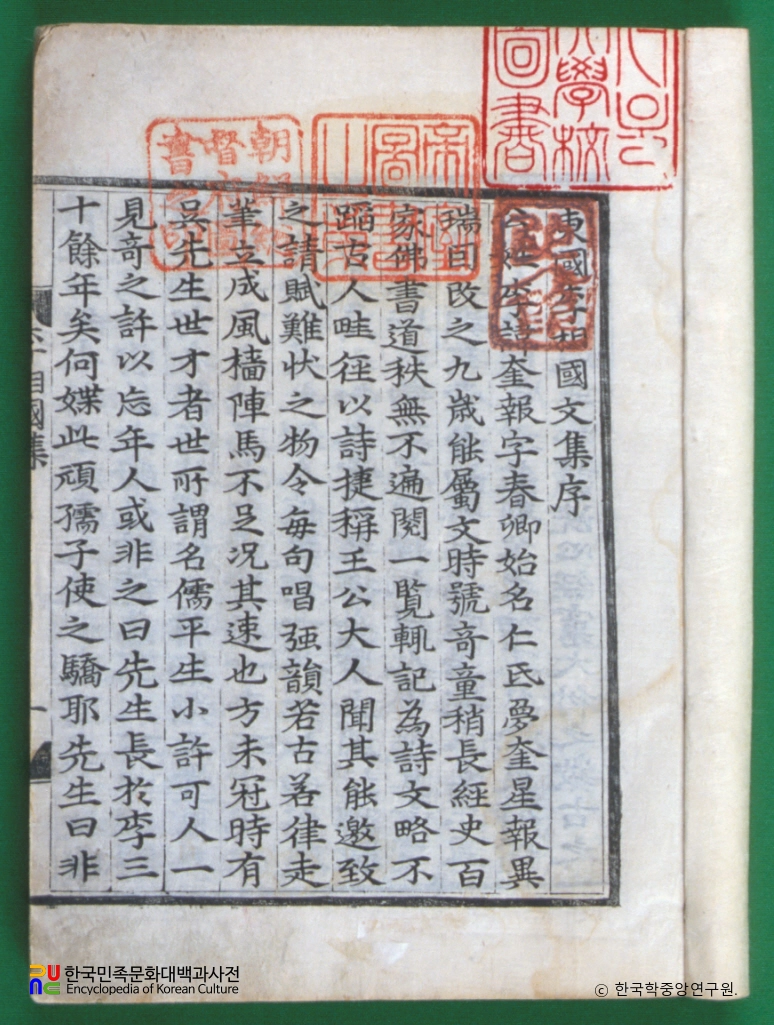 서울
大學校
圖書
朝鮮總
督府圖
書之印
東國李相國文集序
公姓李諱奎報字春卿始名仁氐夢奎星報異
瑞因改之九歲能屬文時號奇童稍長經史百
家佛書道秩無不遍閱一覽輒記為詩文略不
蹈古人畦徑以詩捷稱王公大人聞其能邀致
之請賦難狀之物令每句唱强韻若古若律走
筆立成風檣陣馬不足况其速也方未冠時有
吳先生世才者世所謂名儒平生小許可人一
見奇之許以忘年人或非之曰先生長於李三
十餘年矣何媟此頑孺子使之驕耶先生曰非
李相國集
一
한국민족문화대백과사전
Encyclopedia of Korean Culture
© 한국학중앙연구원.